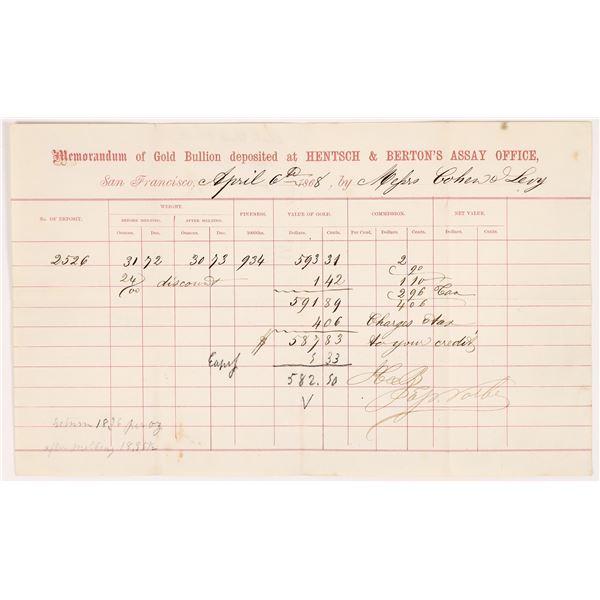 Memorandum of Gold Bullion deposited at HENTSCH & BERTON'S ASSAY OFFICE,
San Francisco, April 6th 1868, by Messrs Cohen & Levy
No. OF DEPOSIT. WEIGHT. FINENESS. VALUE OF GOLD. COMMISSION. NET VALUE.
BEFORE MELTING. AFTER MELTING.
Ounces. Dec. Ounces. Dec. 1000ths. Dollars. Cents. Per Cent. Dollars. Cents. Dollars. Cents.
2526 31 72 30 73 934 593 31 2
90
24/00 discount 1 42 1 10
591 89 2 96
4 06
4 06 Charges & tax
$ 587 83 to your credit
5 33
582.50
V
return 18.36 per oz
after melting